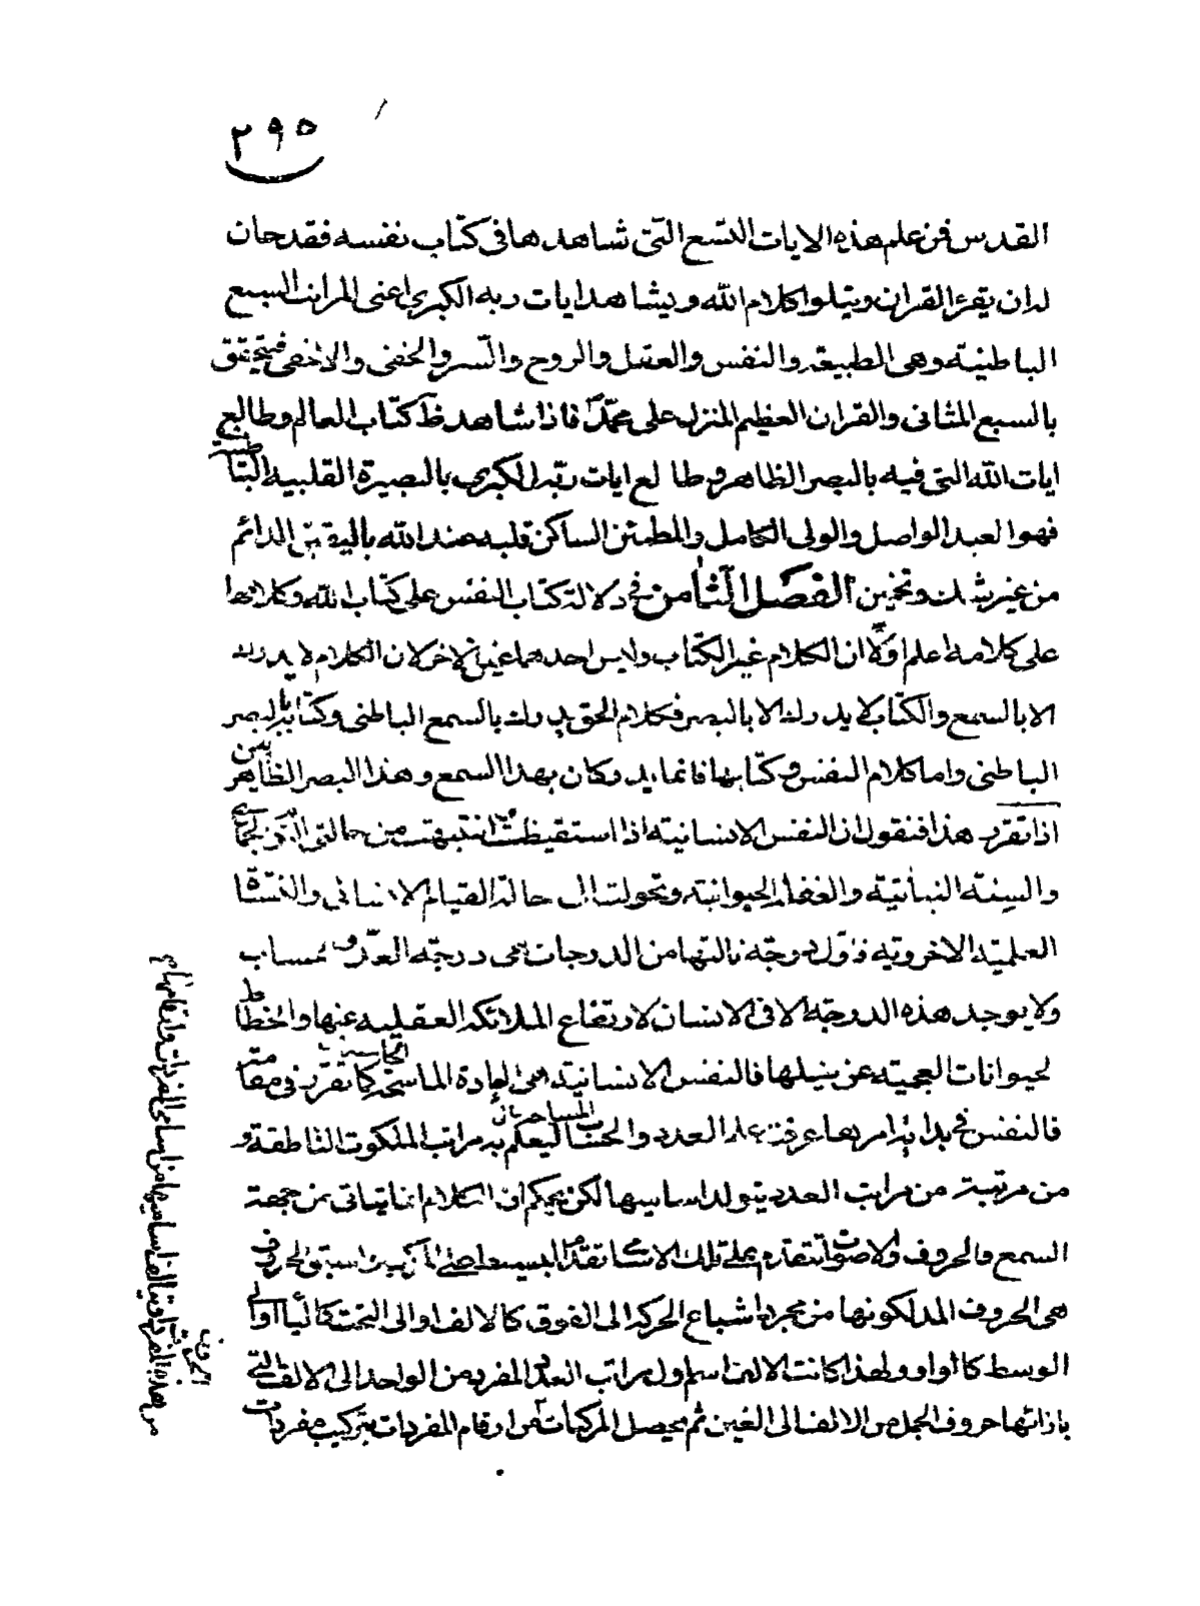 ٢٩٥
القدس فمن علم هذه الايات التسع التى شاهدها فى كتاب نفسه فقد حان
له ان يقرء القران ويتلوا كلام الله ويشاهد ايات ربه الكبرى اعنى المراتب السبع
الباطنية وهى الطبيعة والنفس والعقل والروح والسر والخفى والاخفى فيتحقق
بالسبع المثانى والقران العظيم المنزل على محمد ص فاذا شاهد كتاب العالم وطالع
ايات الله التى فيه بالبصر الظاهر وطالع ايات ربه الكبرى بالبصيرة القلبية الباطنية
فهو العبد الواصل والولى الكامل والمطمئن الساكن قلبه عند الله باليقين الدائم
من غير شك وتخمين الفصل الثامن فى دلالة كتاب النفس على كتاب الله وكلامها
على كلامه اعلم اولا ان الكلام غير الكتاب وليس احدهما عين الاخر لان الكلام لا يدرك
الا بالسمع والكتاب لا يدرك الا بالبصر فكلام الحق يدرك بالسمع الباطنى وكتابه بالبصر
الباطنى واما كلام النفس وكتابها فانما يدركان بهذا السمع وهذا البصر الظاهرين
اذا تقرر هذا فنقول ان النفس الانسانية اذا استيقظت وانتبهت من حالتى
والسنة النباتية والغفلة الحيوانية وتحولت الى حالة القيام الانسانى والنشأة
العلمية الاخروية فاول درجة نالتها من الدرجات هى درجة العدد
ولا يوجد هذه الدرجة الا فى الانسان لارتفاع الملائكة العقلية عنها وانحطاط
الحيوانات العجمية عن نيلها فالنفس الانسانية هى العادة الماسحة كما تقرر فى مقامه
فالنفس فى بداية امرها عرفت علم العدد والحساب ليعلم به مراتب الملكوت الناطقة و
من مرتبة من مراتب العدد يتولد اساسيها لكن يحكم ان الكلام انما يتاتى من جهة
السمع فالحروف والاصوات تتقدم على تلك الاسماء تقدم البسيط على المركب اسبق الحروف
هى الحروف المد لكونها من مجرد اشباع الحركة الى الفوق كالالف او الى التحت كاليا او الى
الوسط كالواو ولهذا كانت الالف اسم اول مراتب العدد المفرد من الواحد الى الالف التى
بازائها حروف الجمل من الالف الى الغين ثم يحصل المركبات من ارقام المفردات بتركيب مفردات